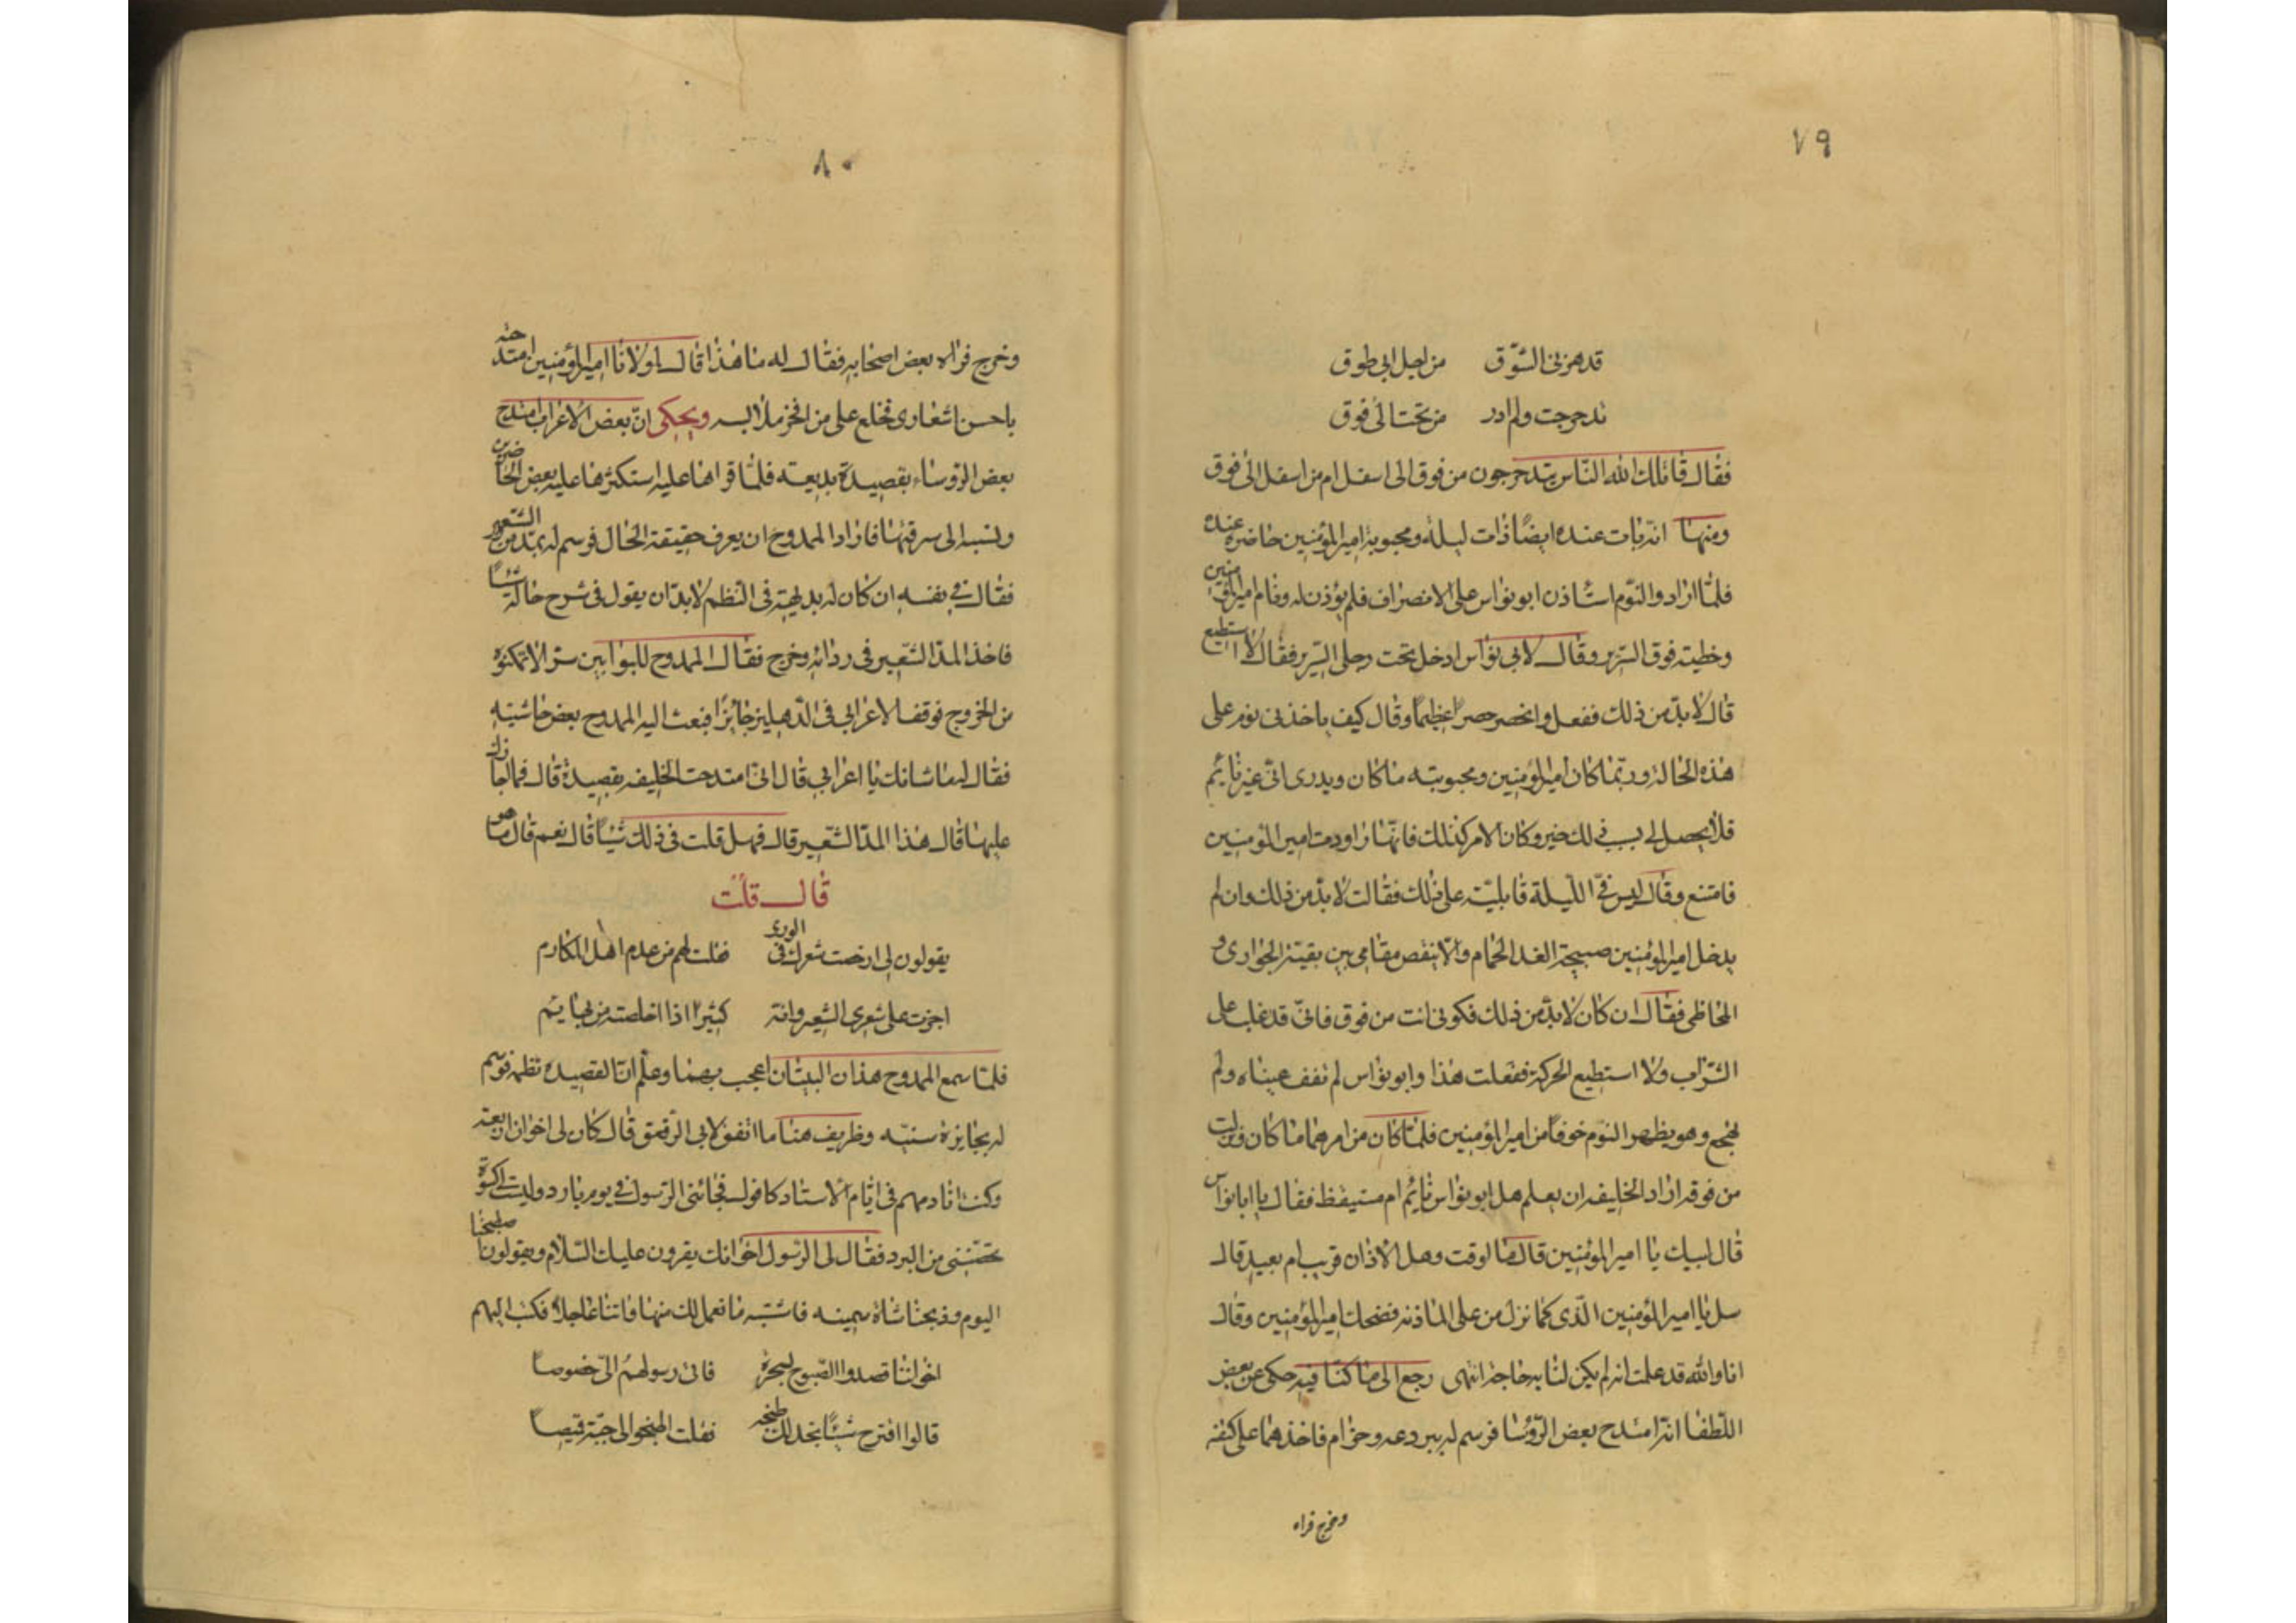 ٧٩
قد هزنى الشوق من اجل ابى طوق
تدحرجت ولم ادر من تحت الى فوق
فقال قاتلك الله الناس يتدحرجون من فوق الى اسفل ام من اسفل الى فوق
ومنها انه بات عنده ايضًا ذات ليلة ومحبوبة امير المؤمنين حاضرة عنده
فلما ارادوا النوم استاذن ابو نواس على الانصراف فلم يؤذن له ونام امير المؤمنين
وخطيته فوق السرير وقال لابى نواس ادخل تحت رجلى السرير فقال لا استطيع
قال لا بد من ذلك ففعل وانحصر حصرًا عظيمًا وقال كيف ياخذنى نوم على
هذه الحالة وربما كان امير المؤمنين ومحبوبته ما كان ويدرى انى غير نائم
فلا يحصل لى بسبب ذلك خير وكان الامر كذلك فانها راودت امير المؤمنين
فامتنع وقال ليس فىّ الليلة قابلية على ذلك فقالت لا بد من ذلك وان لم
يدخل امير المؤمنين صبيحة الغد الحمام والا ينقص مقامى بين بقية الجوارى و
المحاظى فقال ان كان لا بد من ذلك فكونى انت من فوق فانى قد غلب على
الشراب ولا استطيع الحركة ففعلت هذا وابو نواس لم تغف عيناه ولم
يهجع وهو يظهر النوم خوفًا من امير المؤمنين فلما كان من امرهما ما كان ونزلت
من فوقه اراد الخليفه ان يعلم هل ابو نواس نائم ام مستيقظ فقال يا ابا نواس
قال لبيك يا امير المؤمنين قال ما الوقت وهل الاذان قريب ام بعيد قال
سل يا امير المؤمنين الذى كما نزل من على الماذنه فضحك امير المؤمنين وقال
انا والله قد علمت انه لم يكن لنا به حاجة انتهى رجع الى ما كنا فيه حكى عن بعض
اللطفا انه امتدح بعض الرؤسا فرسم له ببردعه وحزام فاخذهما على كتفه
وخرج فراه
٨٠
وخرج فراه بعض اصحابه فقال له ما هذا قال مولانا امير المؤمنين امتدحته
باحسن اشعارى فخلع على من افخر ملابسه ويحكى ان بعض الاعراب امتدح
بعض الرؤساء بقصيدة بديعة فلما قراها عليه استكثرها عليه بعض الحاضرين
ونسبه الى سرقتها فاراد الممدوح ان يعرف حقيقة الحال فرسم له بمد من الشعير
فقال فى نفسه ان كان له بديهة فى النظم لا بد ان يقول فى شرح حاله شيئًا
فاخذ المد الشعير فى ردائه وخرج فقال الممدوح للبوابين سرًا لا تمكنوه
من الخروج فوقف الاعرابى فى الدهليز حائرًا فبعث اليه الممدوح بعض حاشيته
فقال له ما شانك يا اعرابى قال انى امتدحت الخليفه بقصيدة قال فما اجازك
عليها قال هذا المد الشعير قال فهل قلت فى ذلك شيئًا قال نعم قال ما هو
قال قلت
يقولون لى ارخصت شعرك فى الورى فقلت لهم من عدم اهل المكارم
اجزت على شعرى الشعير وانه كثيرًا اذا اخلصته من بهايم
فلما سمع الممدوح هذان البيتان اعجب بهما وعلم ان القصيدة نظمه فرسم
له بجايزة سنيه وظريف هنا ما اتفق لابى الرقعمق قال كان لى اخوان اربعة
وكنت انادمهم فى ايام الاستاد كافور فجائنى الرسول فى يوم بارد وليست لى كسوة
تحصننى من البرد فقال لى الرسول اخوانك يقرون عليك السلام ويقولون اصطبحنا
اليوم وذبحنا شاة سمينه فاشته ما نعمل لك منها واتنا عاجلًا فكتب اليهم
اخواننا قصدوا الصبوح بسحرة فاتى رسولهم الىّ خصوصًا
قالوا اقترح شيئًا نجد لك طبخه فقلت اطبخوا لى جبة وقميصًا